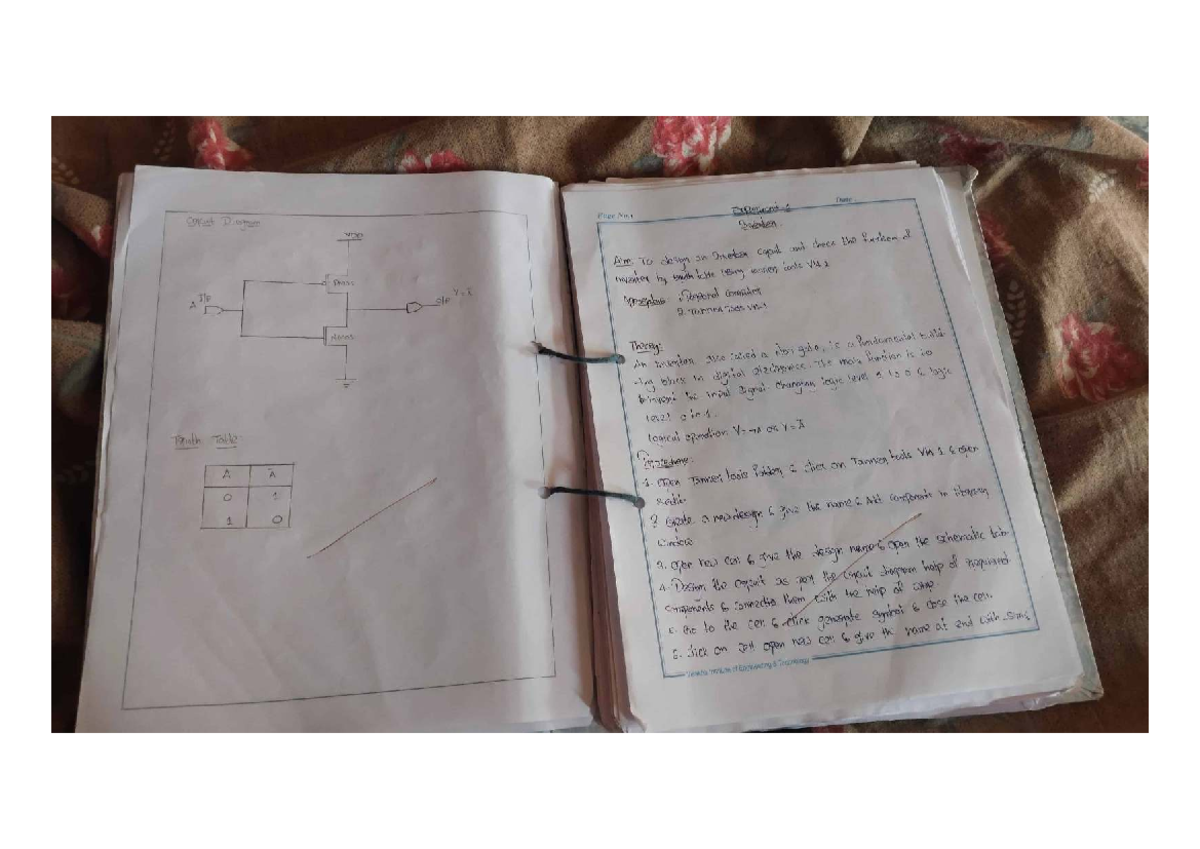 Circuit Diagram
VDD
PMOS
A I/P
O/P Y=Ā
NMOS
Truth Table
A Ā
0 1
1 0
Page No:
Date:
Experiment-1
Inverter
Aim: To design an Inverter and check the function of
inverter by using tanner tools
Apparatus: 1. Personal Computer
2. Tanner Tools
Theory:
An inverter, also called a Not gate, is a fundamental build-
-ing block in digital electronics. The main function is to
invert the input signal changing logic level 1 to 0 & logic
level 0 to 1.
logical operation Y=¬A or Y=Ā
Procedure:
1. Open Tanner tools folder & click on Tanner tools & open
Sedit.
2. Create a new design & give the name & Add components in library
window
3. Open new cell & give the design name & open the schematic tab.
4. Design the circuit as per the circuit diagram help of required
components & them with the help of wire.
5. Go to the cell & click generate symbol & close the cell.
6. click on cell open new cell & give the name at end with
Institute of Engineering & Technology